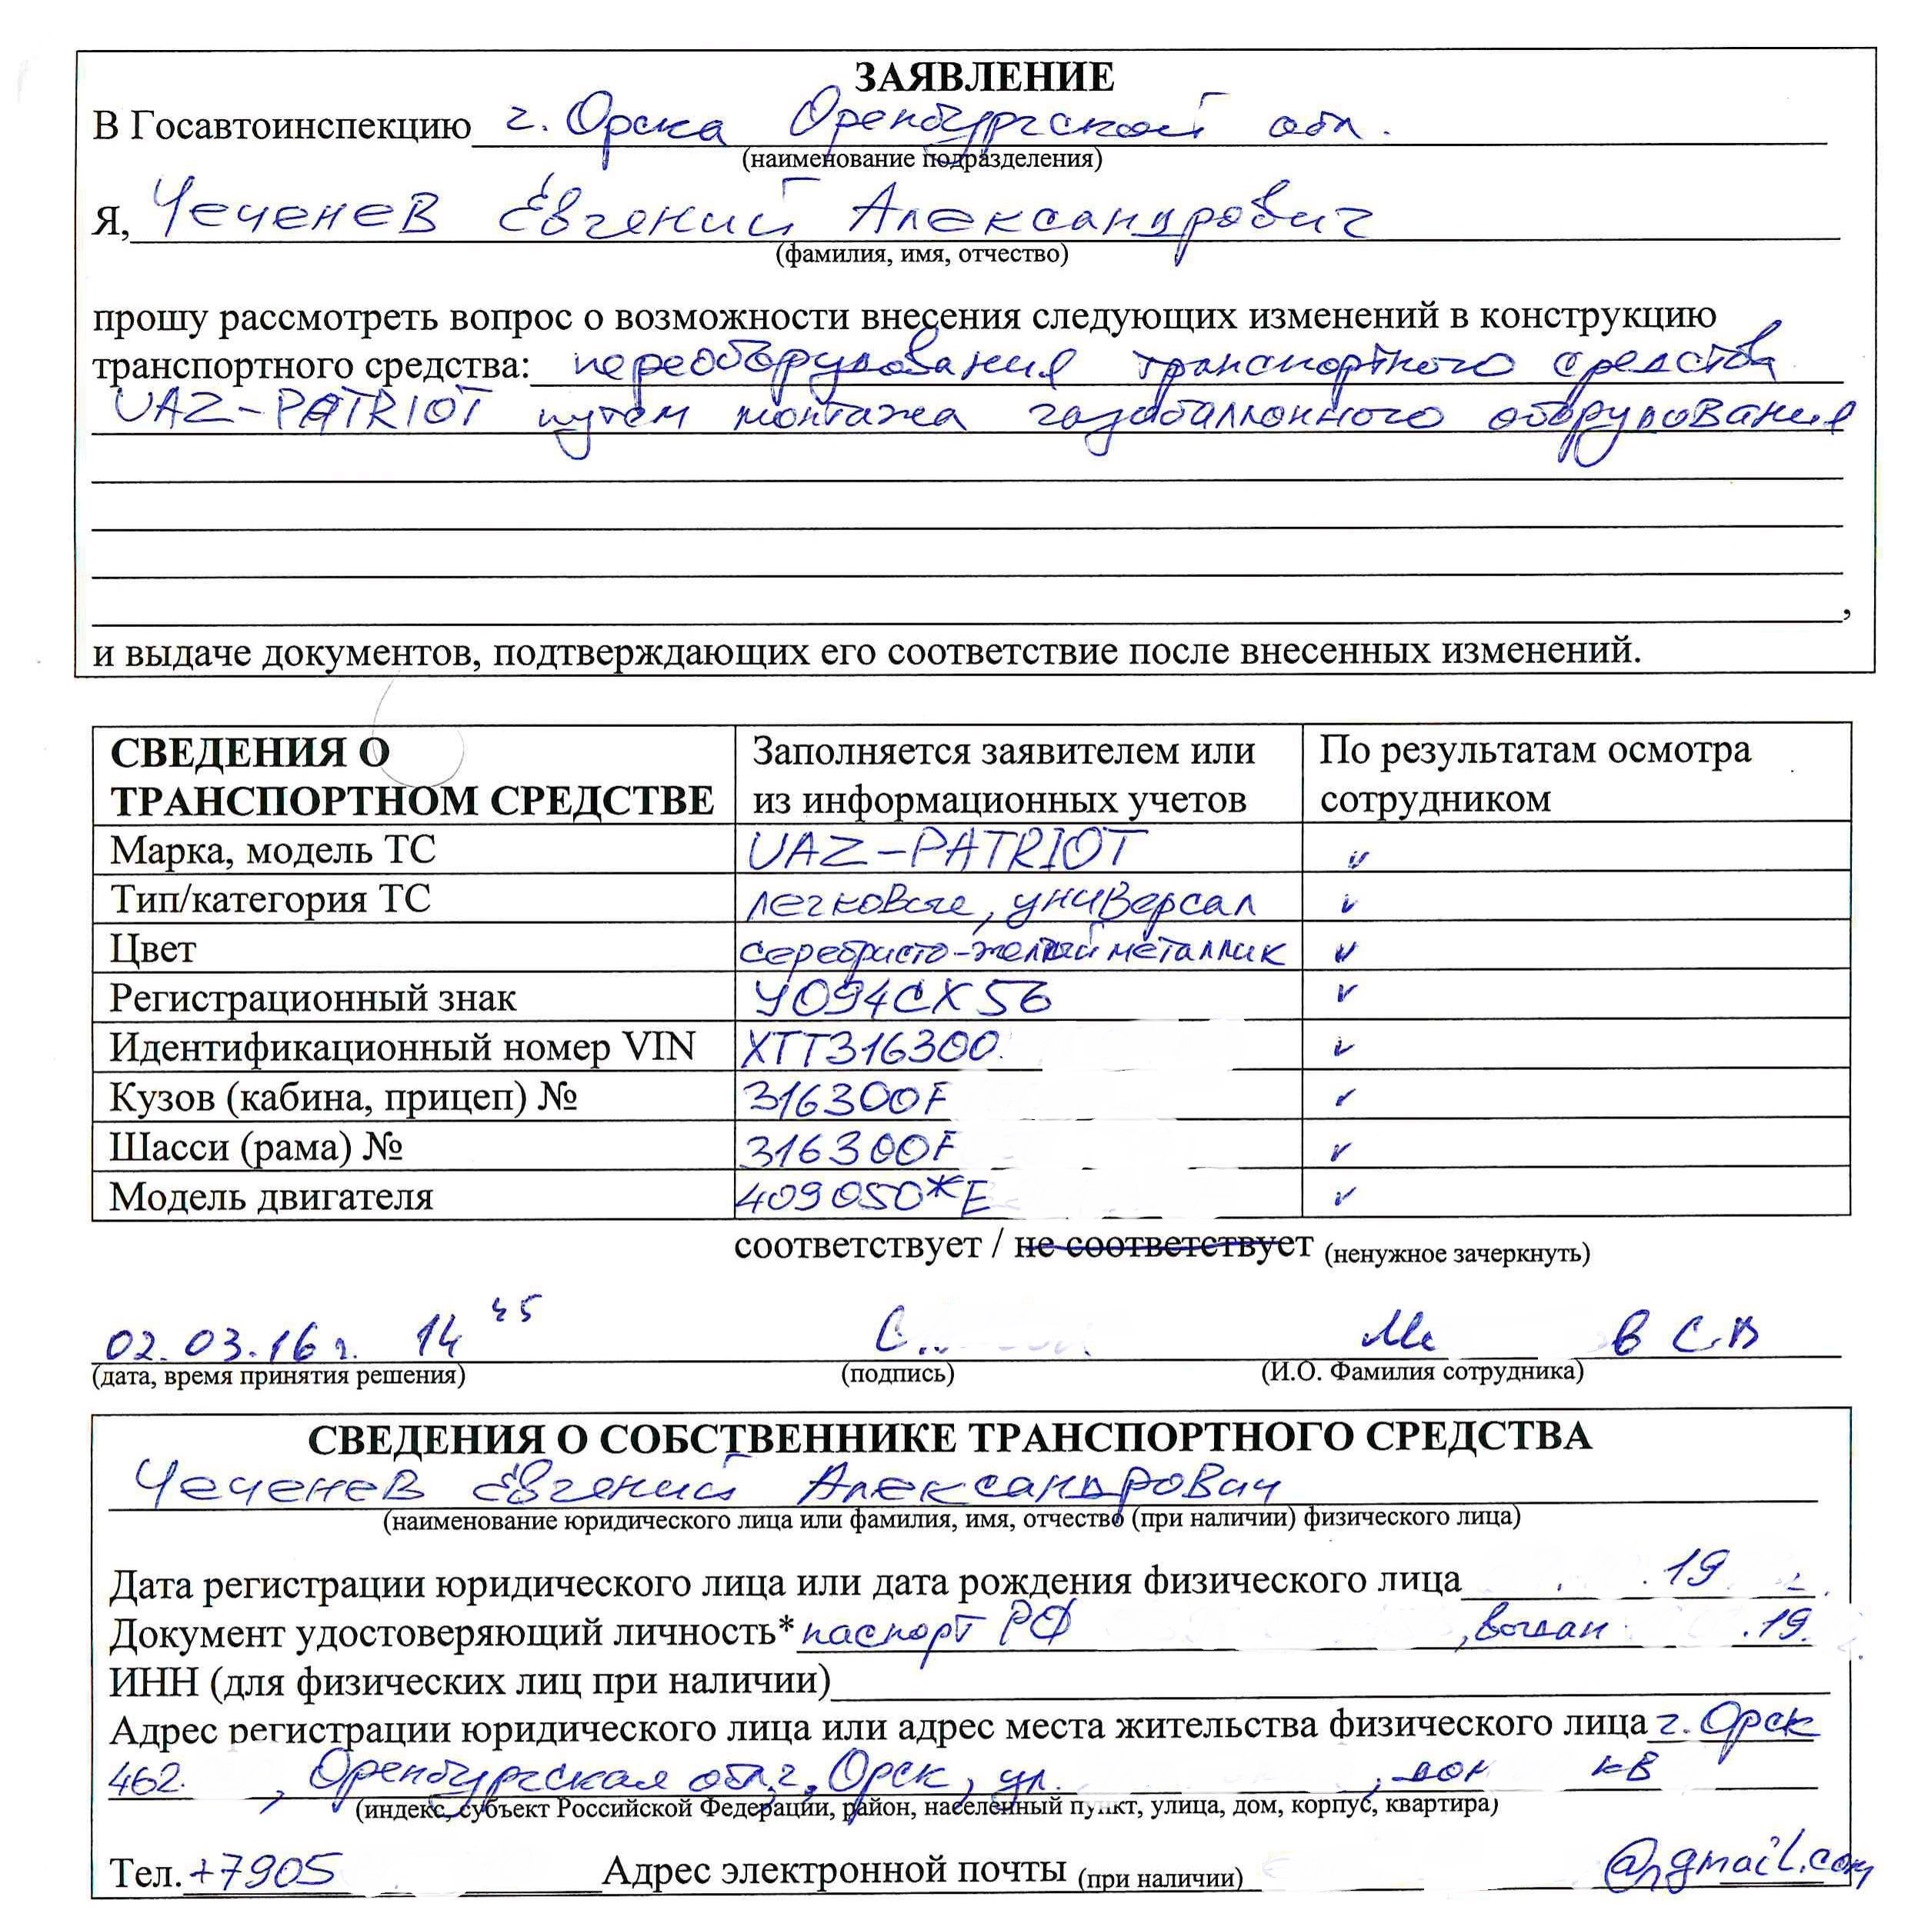 ЗАЯВЛЕНИЕ
В Госавтоинспекцию г. Орска Оренбургской обл.
(наименование подразделения)
Я, Чеченев Евгений Александрович
(фамилия, имя, отчество)
прошу рассмотреть вопрос о возможности внесения следующих изменений в конструкцию
транспортного средства: переоборудования транспортного средства
UAZ-PATRIOT путем монтажа газобаллонного оборудования
,
и выдаче документов, подтверждающих его соответствие после внесенных изменений.
СВЕДЕНИЯ О ТРАНСПОРТНОМ СРЕДСТВЕ Заполняется заявителем или из информационных учетов По результатам осмотра сотрудником
Марка, модель ТС UAZ-PATRIOT v
Тип/категория ТС легковые, универсал v
Цвет серебристо-желтый металлик v
Регистрационный знак У094СХ56 v
Идентификационный номер VIN XTT316300 v
Кузов (кабина, прицеп) № 316300F v
Шасси (рама) № 316300F v
Модель двигателя 409050*E v
соответствует / не соответствует (ненужное зачеркнуть)
02.03.16г. 14 45 С Ме в С.В
(дата, время принятия решения) (подпись) (И.О. Фамилия сотрудника)
СВЕДЕНИЯ О СОБСТВЕННИКЕ ТРАНСПОРТНОГО СРЕДСТВА
Чеченев Евгений Александрович
(наименование юридического лица или фамилия, имя, отчество (при наличии) физического лица)
Дата регистрации юридического лица или дата рождения физического лица . .19
Документ удостоверяющий личность* паспорт РФ , выдан .19.
ИНН (для физических лиц при наличии)
Адрес регистрации юридического лица или адрес места жительства физического лица г. Орск
462 , Оренбургская обл, г. Орск, ул. , дом кв
(индекс, субъект Российской Федерации, район, населенный пункт, улица, дом, корпус, квартира)
Тел. +7905 Адрес электронной почты (при наличии) @gmail.com